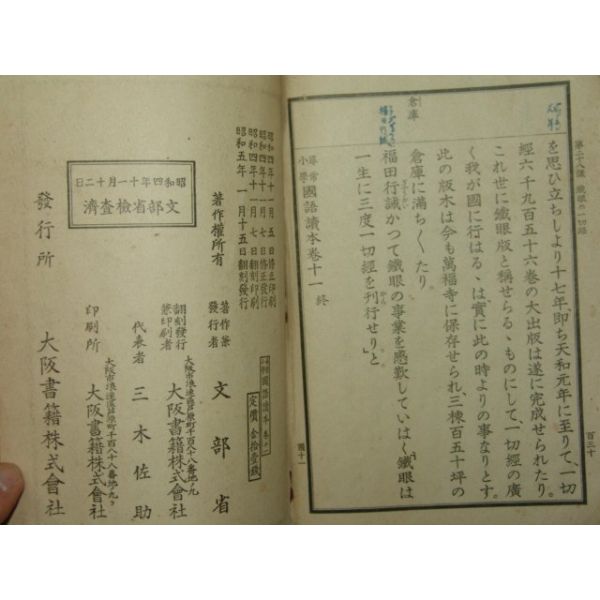 第二十八課 鐵眼の一切經
を思ひ立ちしより十七年、即ち天和元年に至りて、一切
經六千九百五十六卷の大出版は遂に完成せられたり。
これ世に鐵眼版と稱せらるゝものにして、一切經の廣
く我が國に行はるゝは、實に此の時よりの事なりとす。
此の版木は今も萬福寺に保存せられ、三棟百五十坪の
倉庫に滿ちくたり。
福田行誡かつて鐵眼の事業を感歎していはく、「鐵眼は
一生に三度一切經を刊行せり」と。
尋常小學國語讀本卷十一 終
百三十
國十一
倉庫
昭和四年十一月五日修正印刷
昭和四年十一月七日修正發行
昭和四年十一月七日翻刻印刷
昭和五年一月十五日翻刻發行
著作權所有
著作兼發行者 文部省
定價 金拾壹錢
翻刻發行兼印刷者
大阪市浪速區芦原町千百八十八番地ノ九
大阪書籍株式會社
代表者 三木佐助
印刷所
大阪市浪速區芦原町千百八十八番地ノ九
大阪書籍株式會社
昭和四年十一月十二日
文部省檢查濟
發行所 大阪書籍株式會社